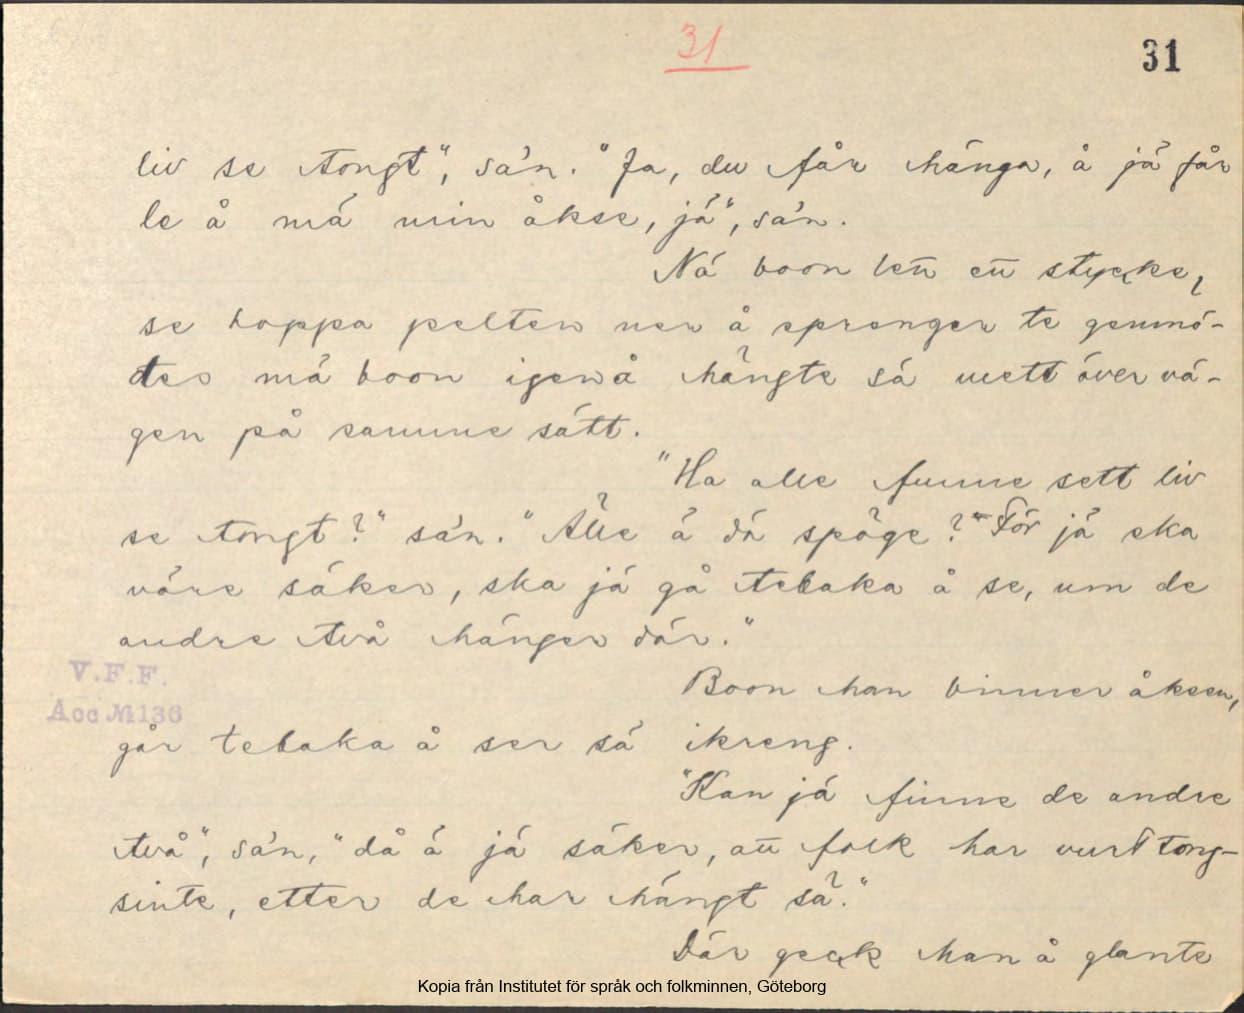 31
31
liv se tongt", sa'n. "Ja, du får hänga, å jä får
le å mä min åkse, jä", sa'n.
Nä boon lett ett stycke,
se hoppa pelten ner å sprenger te genmö-
tes mä boon igen å hängte sä mett över vä-
gen på samme sätt.
"Ha alle funne sett liv
se tongt?" sa'n. "Älle ä dä spöge? För jä ska
väre säker, ska jä gå tebaka å se, um de
andre två hänger där."
Boon han binner åksen,
V.F.F.
Acc № 136
går tebaka å ser sä ikreng.
"Kan jä finne de andre
två", sa'n, "då ä jä säker, att folk har vurt tong-
sinte, etter de har hängt sä."
Där geck han å glante
Kopia från Institutet för språk och folkminnen, Göteborg